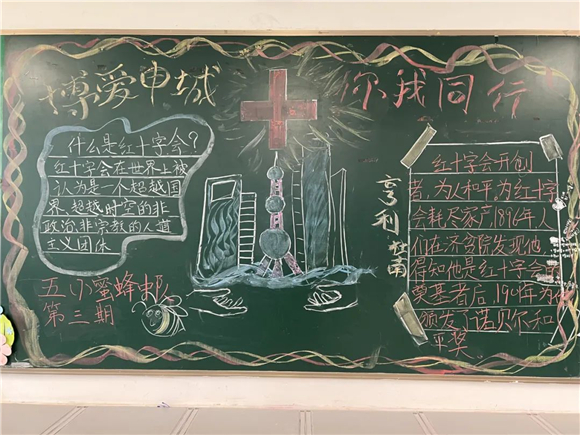 博爱申城
你我同行
什么是红十字会?
红十字会在世界上被
认为是一个超越国
界、超越时空的非
政治、非宗教的人道
主义团体
五(1)蜜蜂邮
第三期
亨利杜南
红十字会开创
者,为人和平,为红十字
会耗尽家产,1896年人
们在济贫院发现他,
得知他是红十字会的
奠基者后,1901年为他
颁发了诺贝尔和
平奖